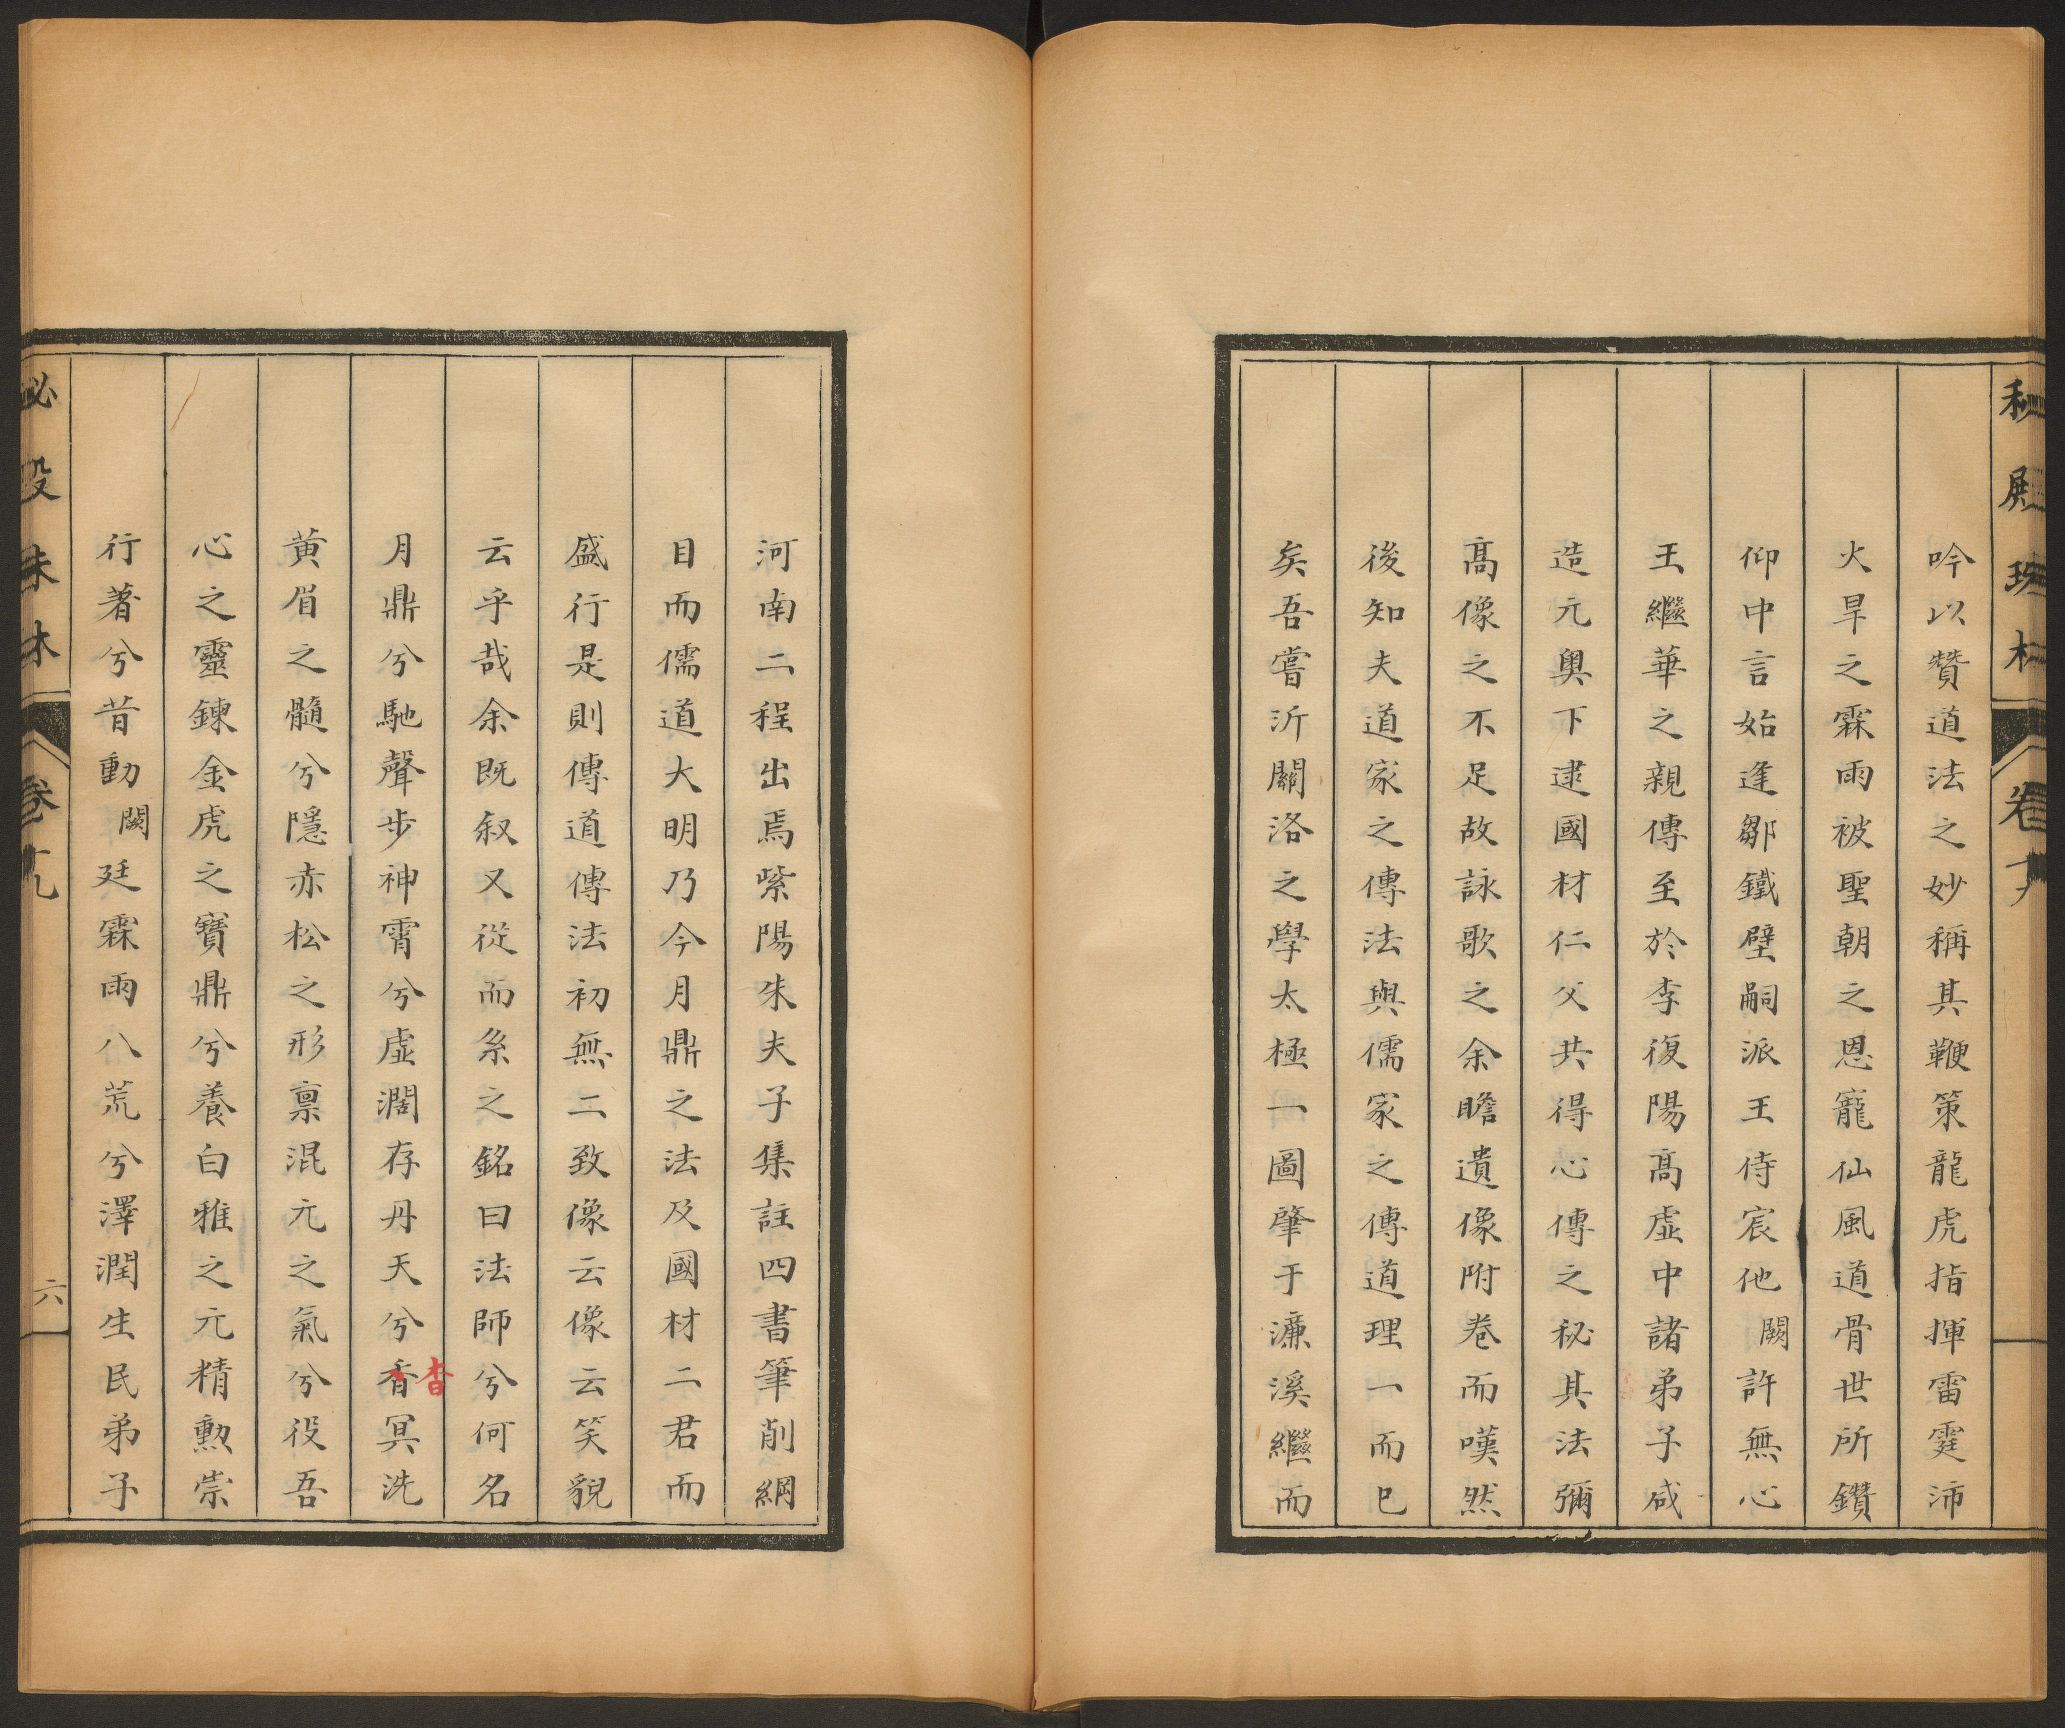 吟以贊道法之妙稱其鞭策龍虎指揮雷霆沛
火旱之霖雨被聖朝之恩寵仙風道骨世所鑽
仰中言始逢鄒鐵壁嗣派王侍宸他闕許無心
王繼華之親傳至於李復陽高虛中諸弟子咸
造元奧下逮國材仁父共得心傳之秘其法彌
高像之不足故詠歌之余瞻遺像附卷而嘆然
後知夫道家之傳法與儒家之傳道理一而已
矣吾嘗沂關洛之學太極一圖肇于濂溪繼而
河南二程出焉紫陽朱夫子集註四書筆削綱
目而儒道大明乃今月鼎之法及國材二君而
盛行是則傳道傳法初無二致像云像云笑貌
云乎哉余既叙又從而系之銘曰法師兮何名
月鼎兮馳聲步神霄兮虛濶存丹天兮香冥洗
杳
黃眉之髓兮隱赤松之形禀混元之氣兮役吾
心之靈鍊金虎之寶鼎兮養白雅之元精勲崇
行著兮昔動闕廷霖雨八荒兮澤潤生民弟子
秘殿珠林 卷十九 六